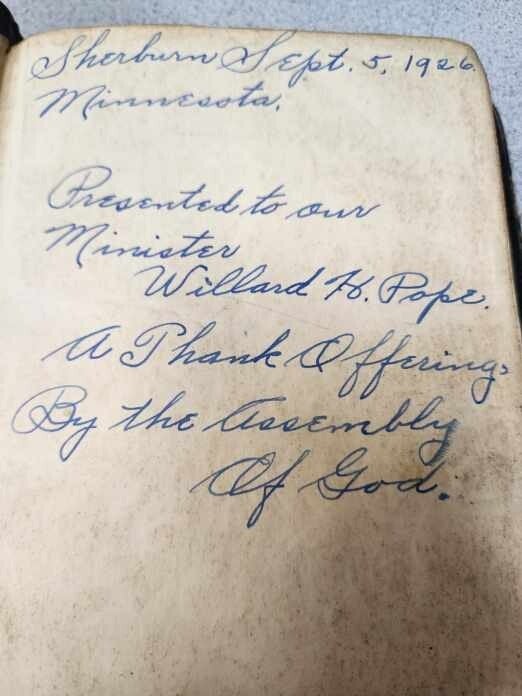 Sherburn Sept. 5, 1926.
Minnesota.
Presented to our
Minister
Willard H. Pope.
A Thank Offering,
By the Assembly
Of God.